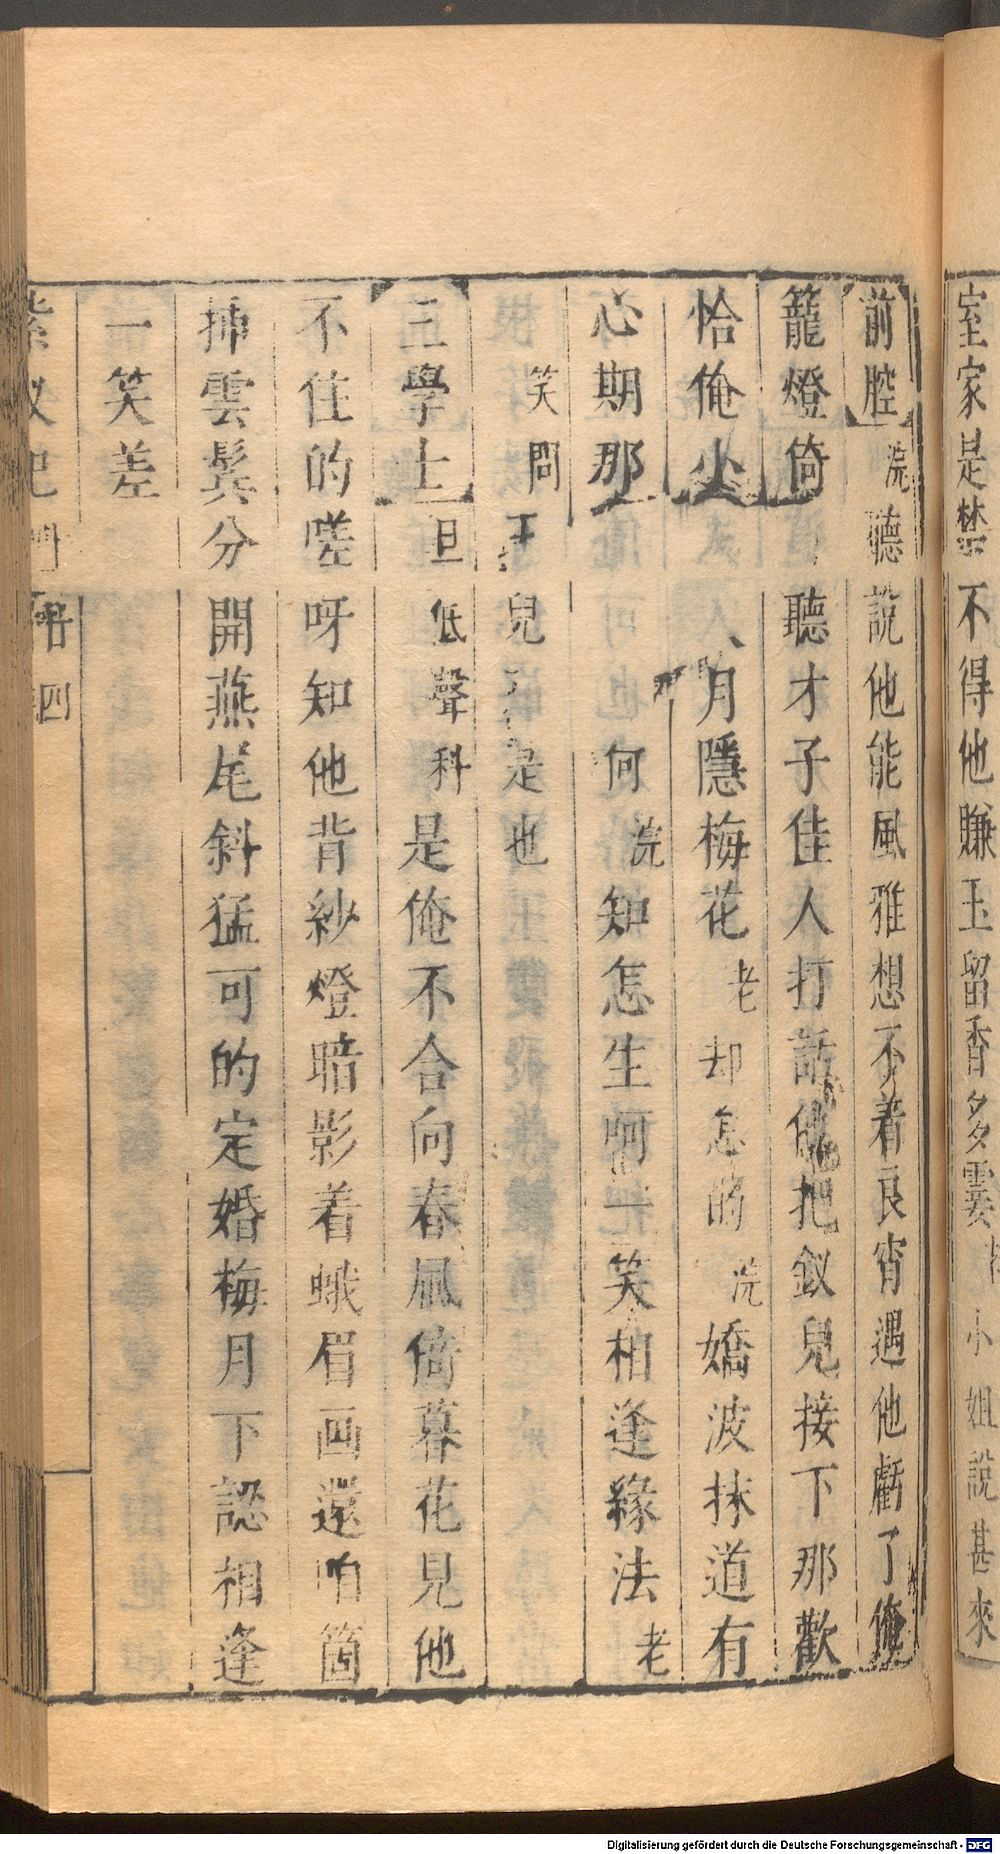 室家是禁不得他賺玉留香多霎 小姐說甚來
前腔 浣聽說他能風雅想不着良宵遇他虧了俺
籠燈倚 聽才子佳人打話 把釵兒接下那歡
恰俺 月隱梅花 老却怎的 浣嬌波抹道有
心期那 何 浣知怎生呵一笑相逢緣法 老
笑問 兒 是也
三學士 旦低聲科 是俺不合向春風倚暮花見他
不住的嗟呀知他背紗燈暗影着蛾眉画還咱箇
插雲鬢分開燕尾斜猛可的定婚梅月下認相逢
一笑差
四
Digitalisierung gefördert durch die Deutsche Forschungsgemeinschaft - DFG